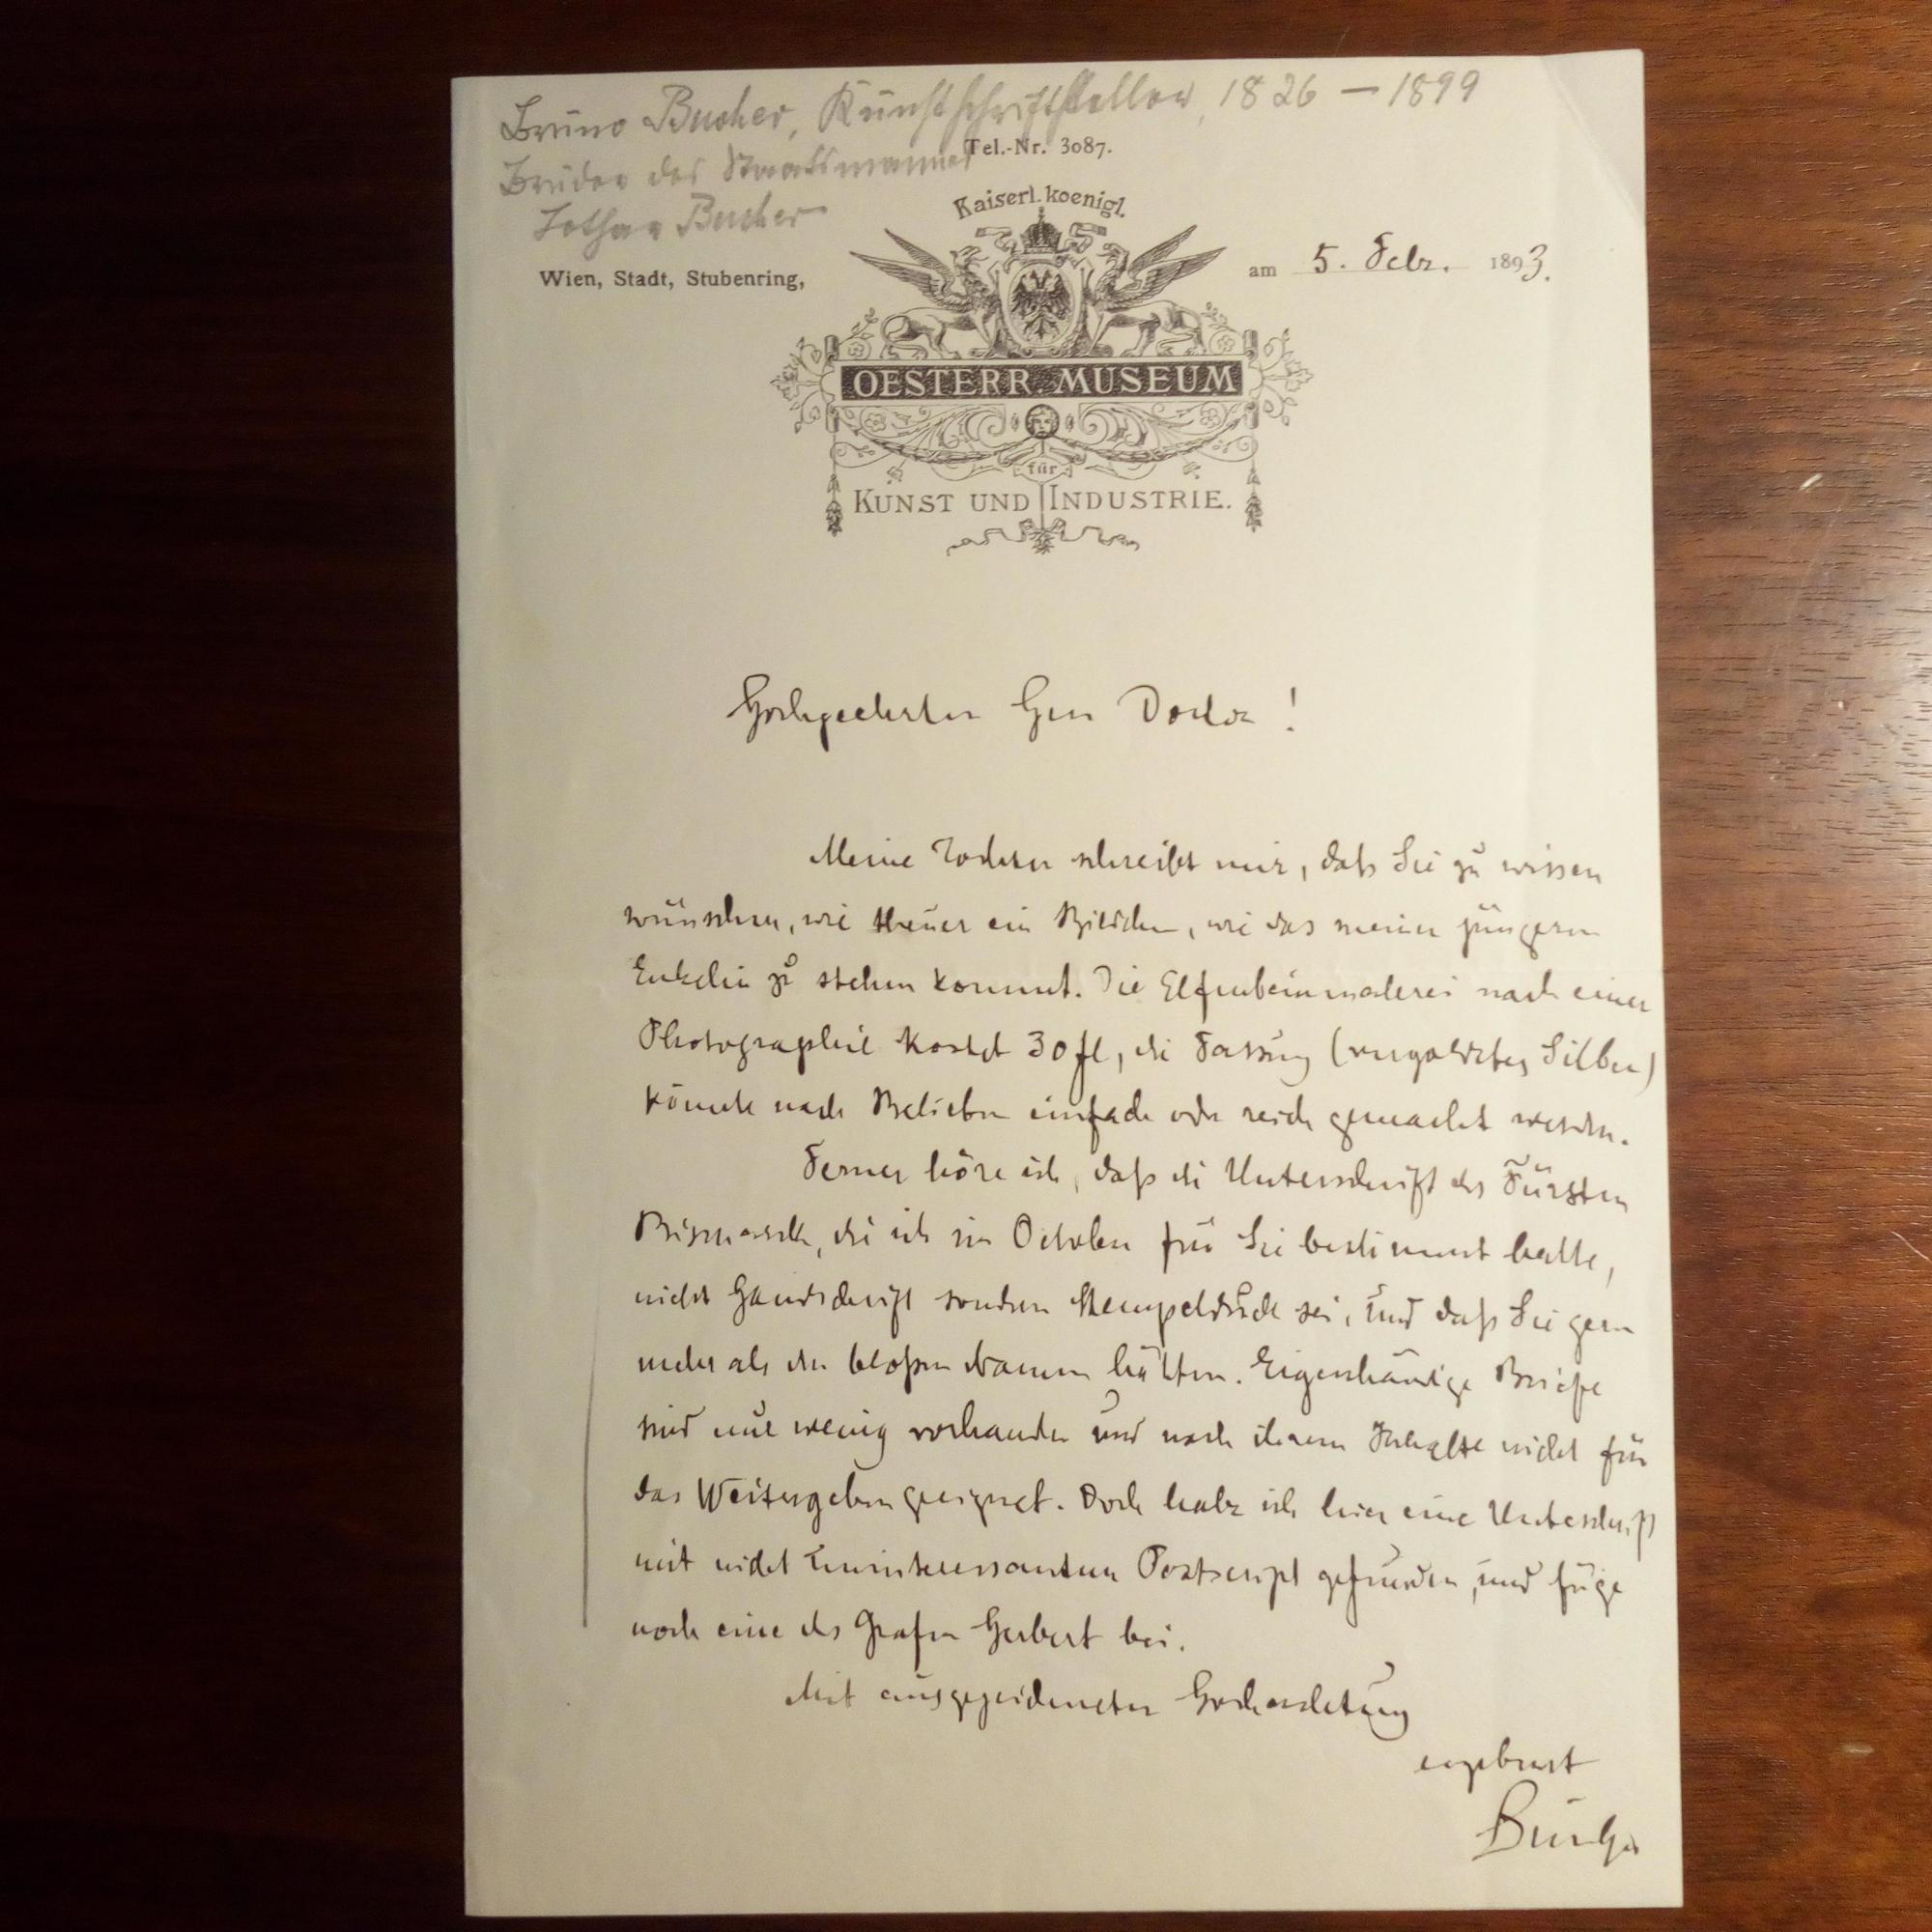 Bruno Bucher, Kunstschriftsteller, 1826 – 1899
Bruder des Staatsmannes
Lothar Bucher
Tel.-Nr. 3087.
Kaiserl. koenigl.
Wien, Stadt, Stubenring,
am 5. Febr. 1893.
OESTERR. MUSEUM
für
KUNST UND INDUSTRIE.
Hochgeehrter Herr Doctor!
Meine Tochter schreibt mir, daß Sie zu wissen
wünschen, wie theuer ein Bildchen, wie das meiner jüngern
Enkelin zu stehen kommt. Die Elfenbeinmalerei nach einer
Photographie kostet 30 fl, die Fassung (vergoldetes Silber)
könnte nach Belieben einfach oder reich gemacht werden.
Ferner höre ich, daß die Unterschrift des Fürsten
Bismarck, die ich im October für Sie bestimmt hatte,
nicht Handschrift sondern Stempeldruck sei, und daß Sie gern
mehr als den bloßen Namen hätten. Eigenhändige Briefe
sind nur wenig vorhanden und nach ihrem Inhalte nicht für
das Weitergeben geeignet. Doch habe ich hier eine Unterschrift
mit nicht uninteressantem Postscript gefunden, und füge
noch eine des Grafen Herbert bei.
Mit ausgezeichneter Hochachtung
ergebenst
Bucher